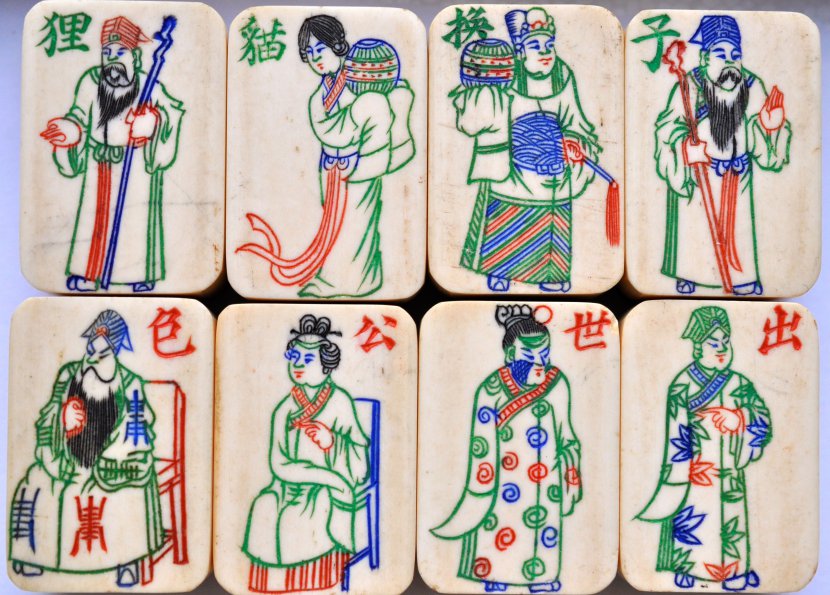 狸 貓 換 子
色 公 世 出